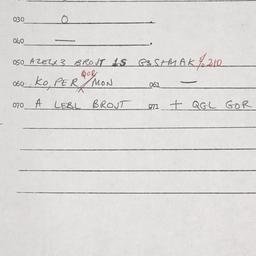 030 O
040 —
050 AZELX3 BROVT IS G3SHMAK % 210
060 KO, PER / MON 061 —
070 A LEBL BROVT 071 + QGL GOR